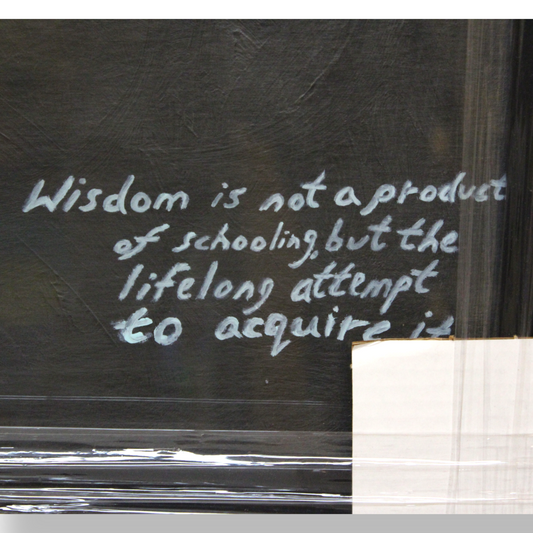 Wisdom is not a product
of schooling, but the
lifelong attempt
to acquire it